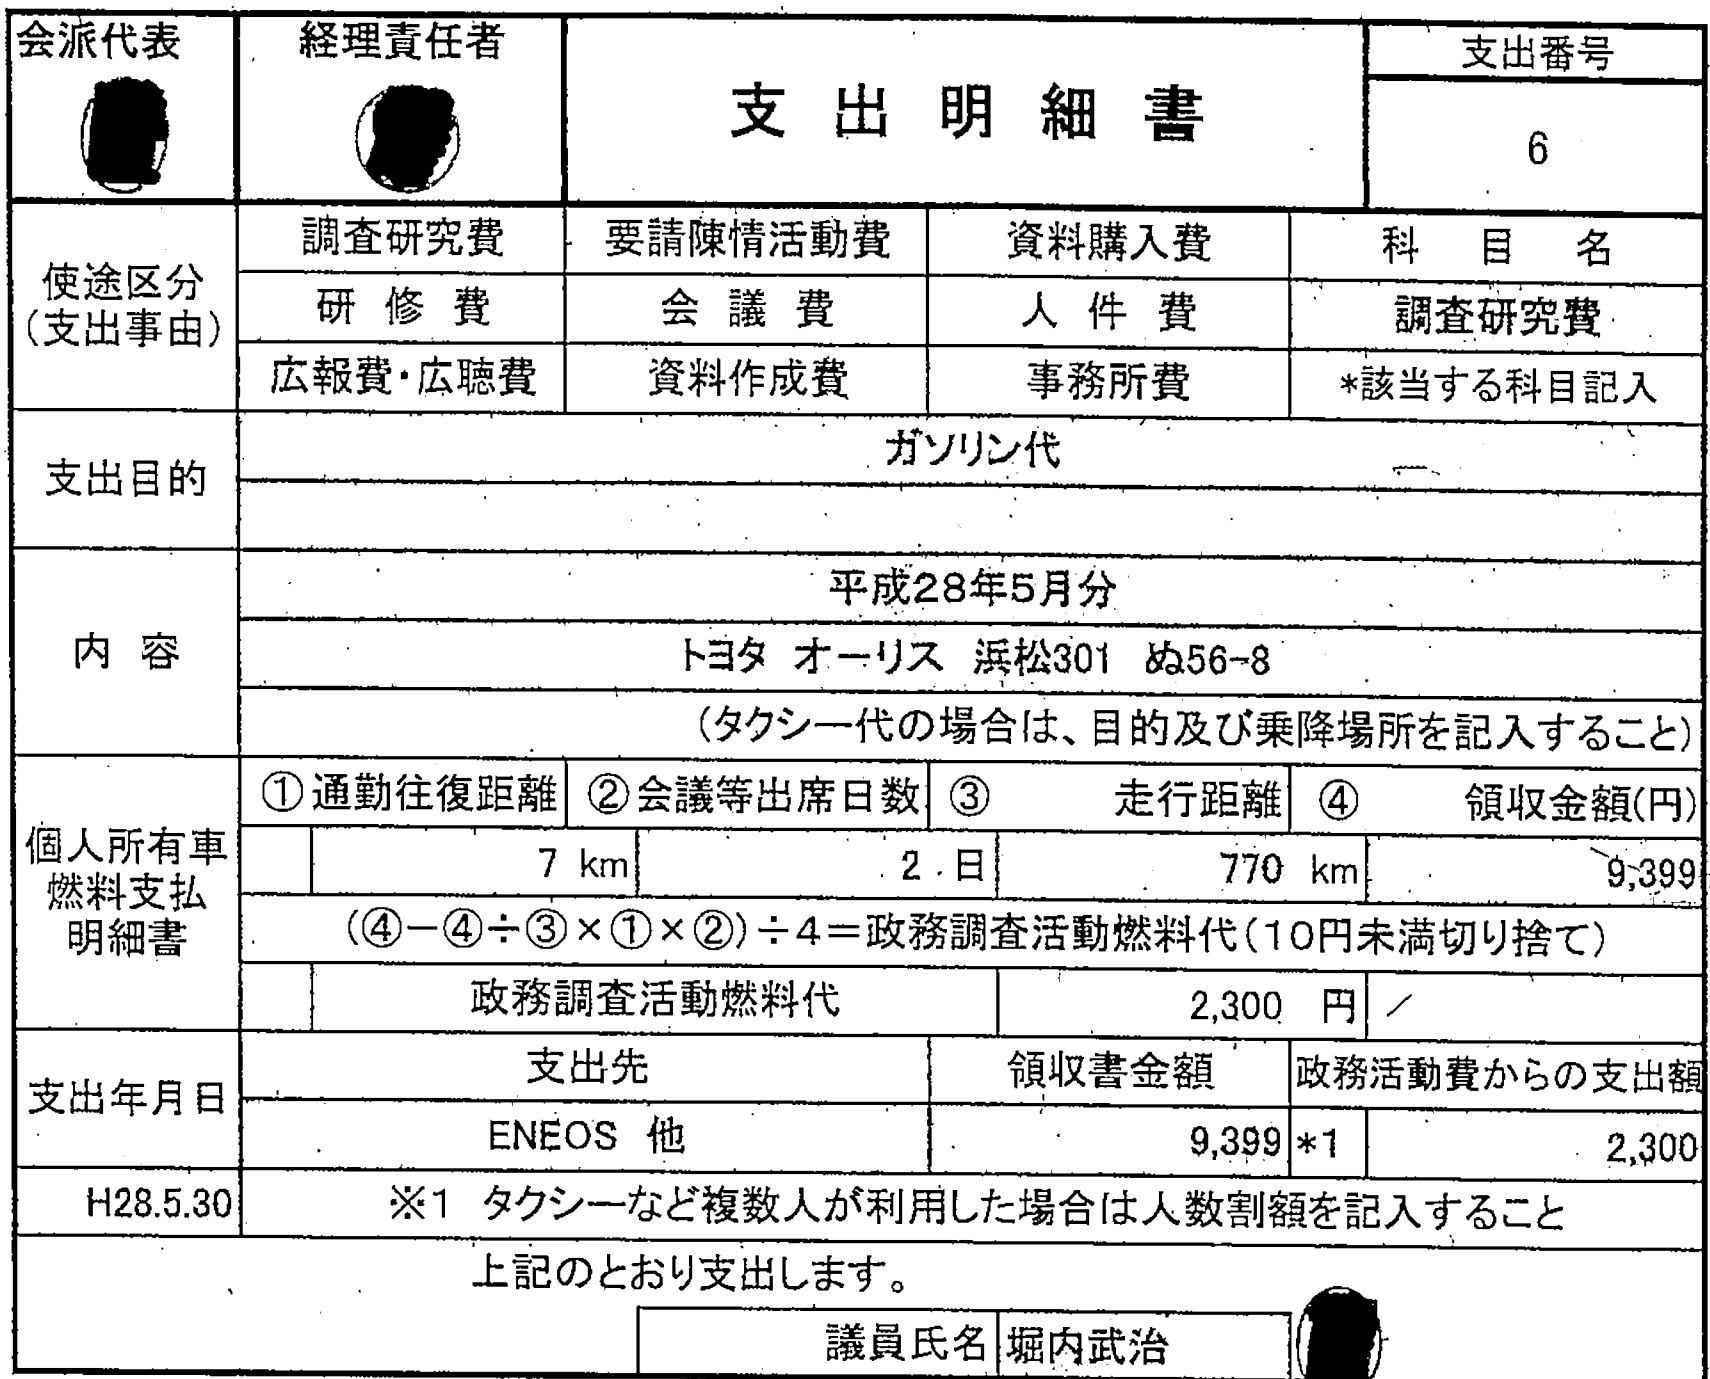 会派代表 経理責任者 支出明細書 支出番号
6
使途区分
(支出事由)
調査研究費 要請陳情活動費 資料購入費 科目名
研修費 会議費 人件費 調査研究費
広報費・広聴費 資料作成費 事務所費 *該当する科目記入
支出目的
ガソリン代
内容
平成28年5月分
トヨタ オーリス 浜松301 ぬ56-8
(タクシー代の場合は、目的及び乗降場所を記入すること)
個人所有車
燃料支払
明細書
①通勤往復距離 ②会議等出席日数 ③ 走行距離 ④ 領収金額(円)
7 km 2 日 770 km 9,399
(④-④÷③×①×②)÷4=政務調査活動燃料代(10円未満切り捨て)
政務調査活動燃料代 2,300 円
支出年月日
支出先 領収書金額 政務活動費からの支出額
ENEOS 他 9,399 *1 2,300
H28.5.30 ※1 タクシーなど複数人が利用した場合は人数割額を記入すること
上記のとおり支出します。
議員氏名 堀内武治